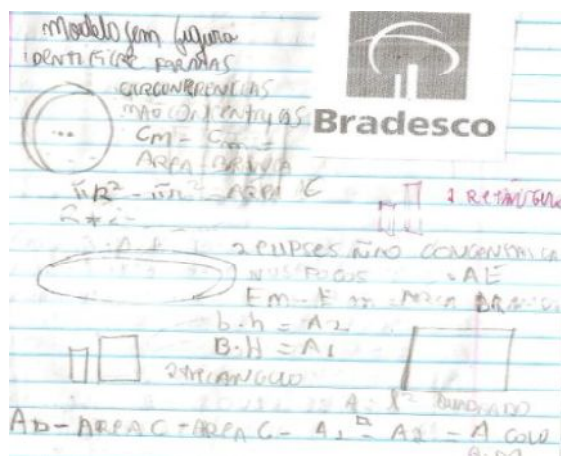 Modelo sem figura
IDENTIFICAR FORMAS
CIRCUNFERENCIAS
NÃO CONCENTRICAS
Bradesco
Cm -
AREA BRANCA
πR² - πr² = AREA C
2 RETÂNGULO
2 ELIPSES NÃO CONCENTRICA
FOCOS = AE
Em - E m = AREA BRANCA
b.h = A2
B.H = A1
2 RETANGULO
A= l² QUADRADO
AREA C - AREA C - A1 - A2 = A COLO